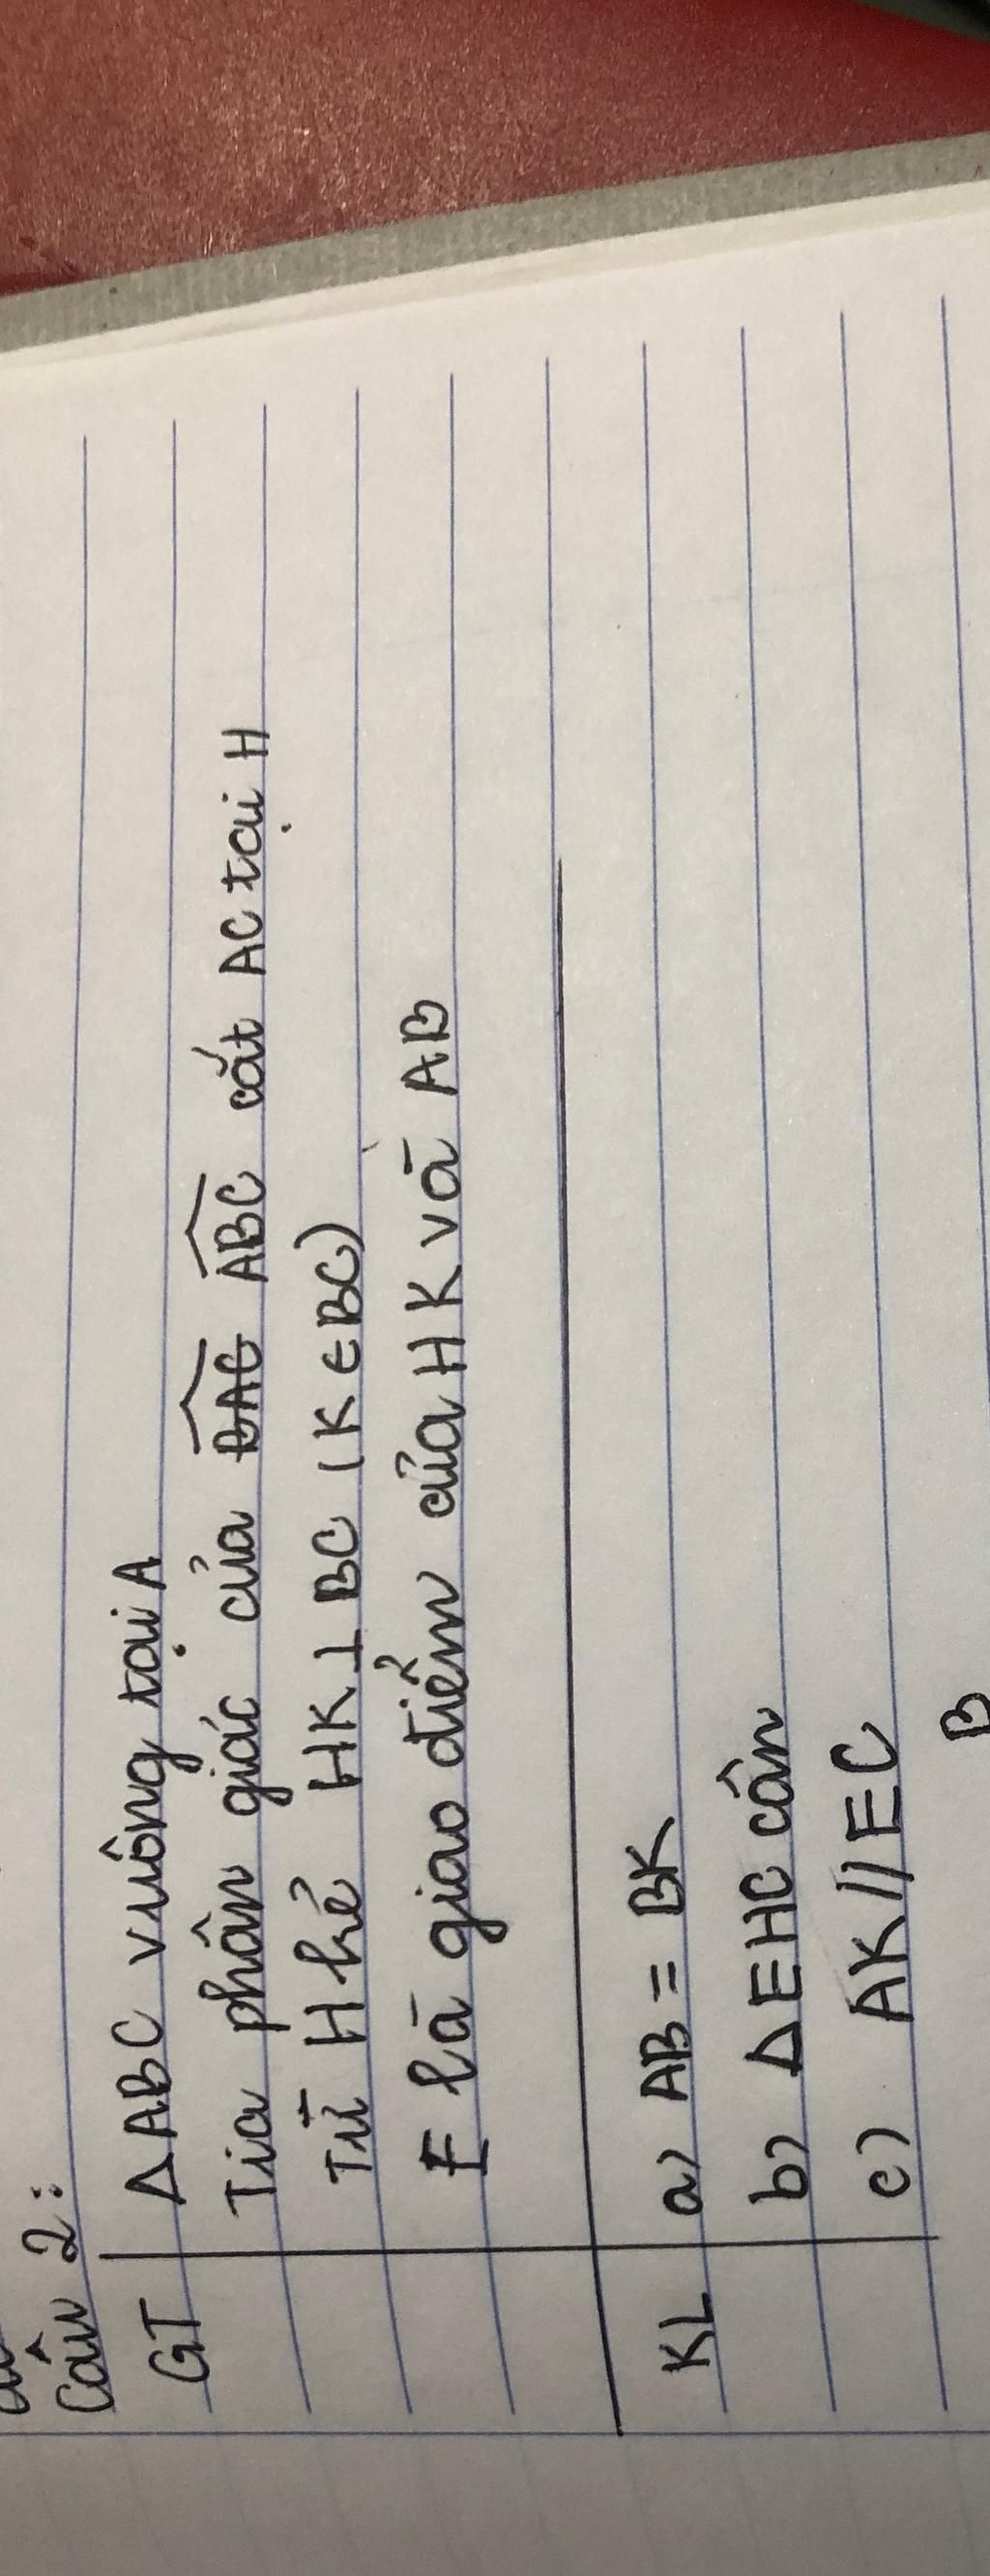 Câu 2:
GT ΔABC vuông tại A
Tia phân giác của ABC cắt AC tại H
Từ H kẻ HK⊥BC (K∈BC)
E là giao điểm của HK và AB
KL a) AB = BK
b) ΔEHC cân
c) AK//EC
B